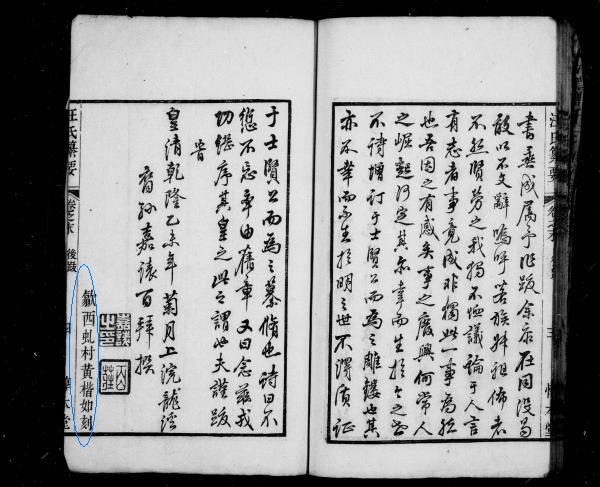 汪氏纂要 卷之末
三
書垂成属予作跋余忝在同
敢以不文辭嗚呼若族祖佈者
不然賢勞之我獨不恤議論于人言
有志者事竟成非獨此一事為然
也吾因之有感矣事之廢興何常人
之崛起何定其亦幸而生於今之世
不特增訂于士賢公而為之雕鏤也其
亦不幸而不生於明之世不得質証
于士賢公而為之纂脩也詩曰不
愆不忘率由舊章又曰念茲戎
功繼序其皇之此之謂也夫謹跋
旹
皇清乾隆乙未年菊月上浣龍溪
裔孫嘉百拜撰
汪氏纂要 卷之末 後跋
四
本堂
歙西虬村黃楷如刻